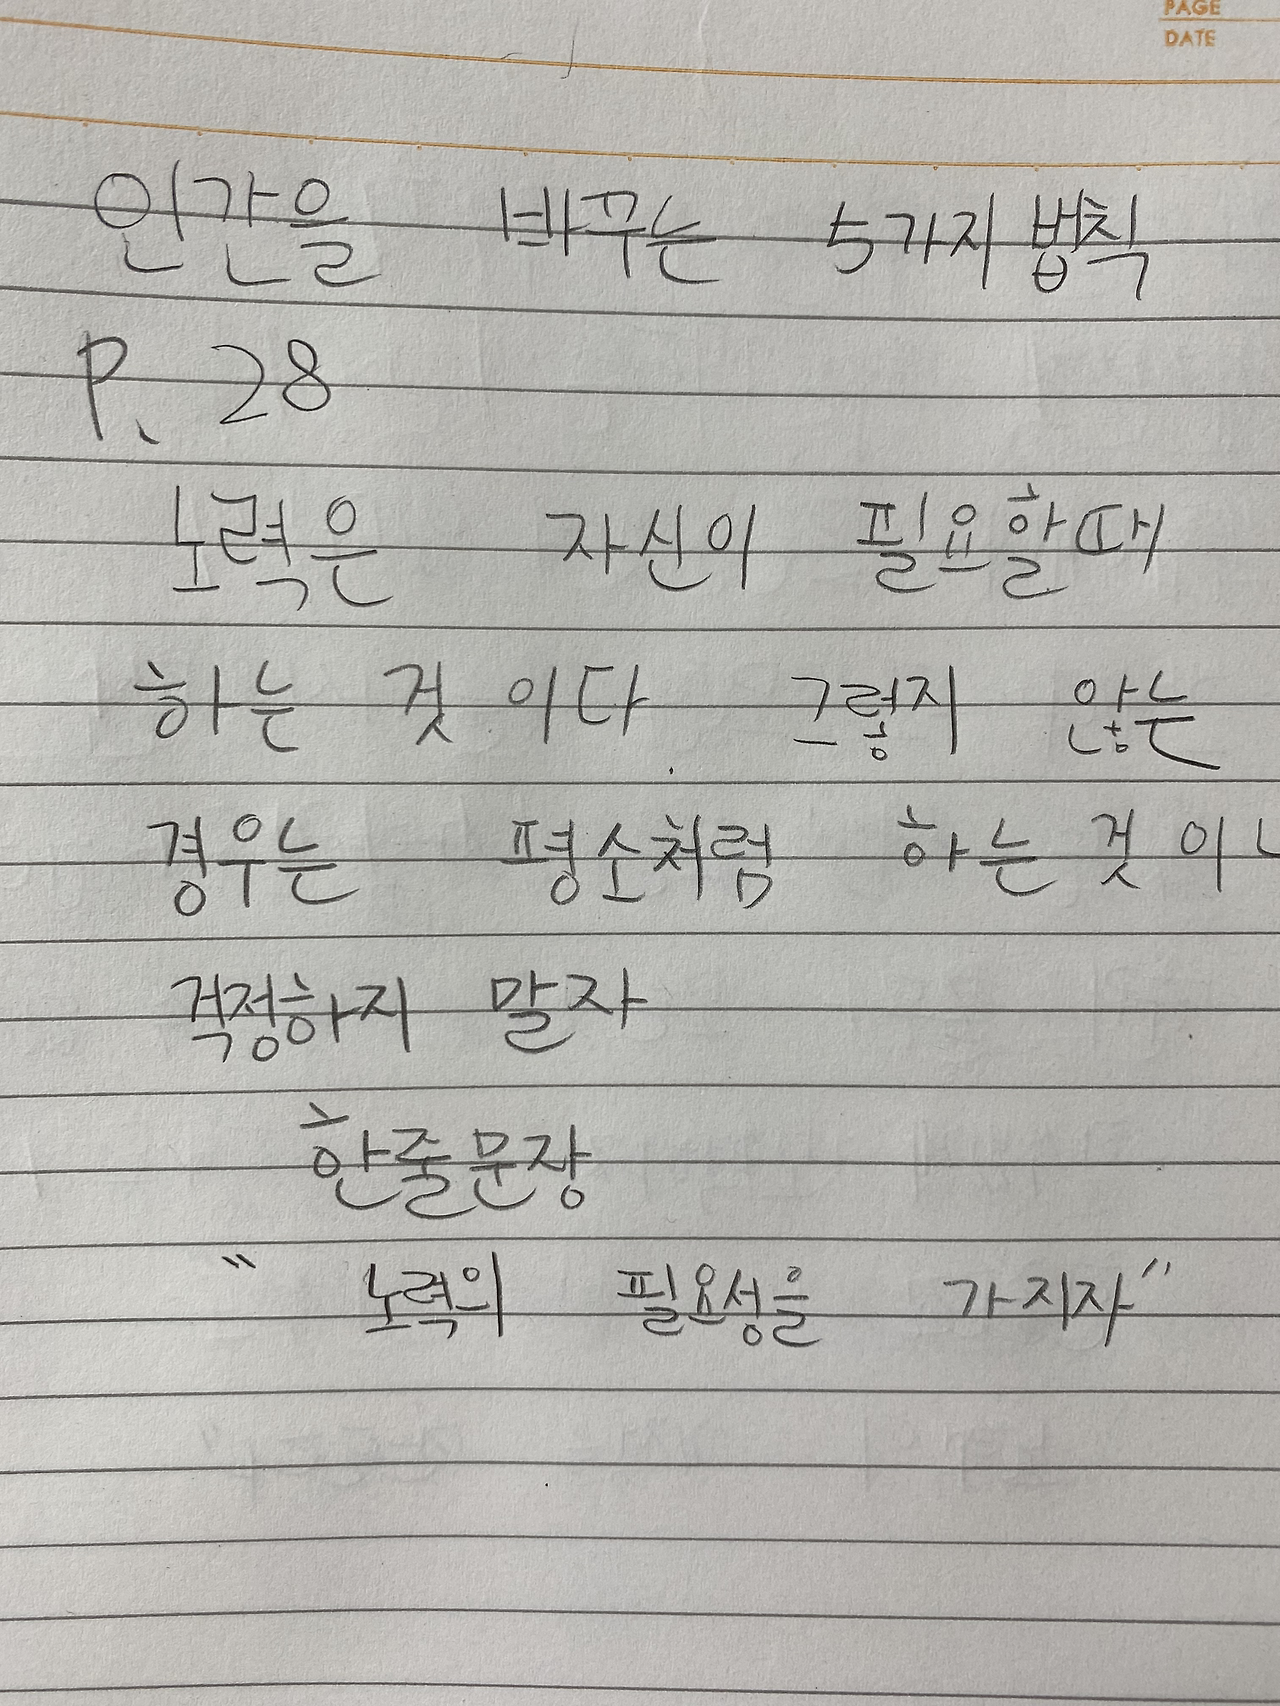 PAGE
DATE
인간을 바꾸는 5가지 법칙
P. 28
노력은 자신이 필요할때
하는 것 이다 그렇지 않는
경우는 평소처럼 하는 것 이니
걱정하지 말자
한줄문장
" 노력의 필요성을 가지자"